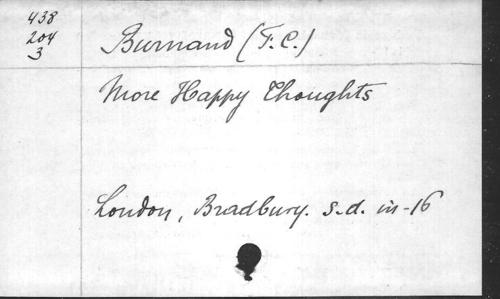 438
204
3
Burnand (F.C.)
More Happy Thoughts
London, Bradbury. s.d. in-16